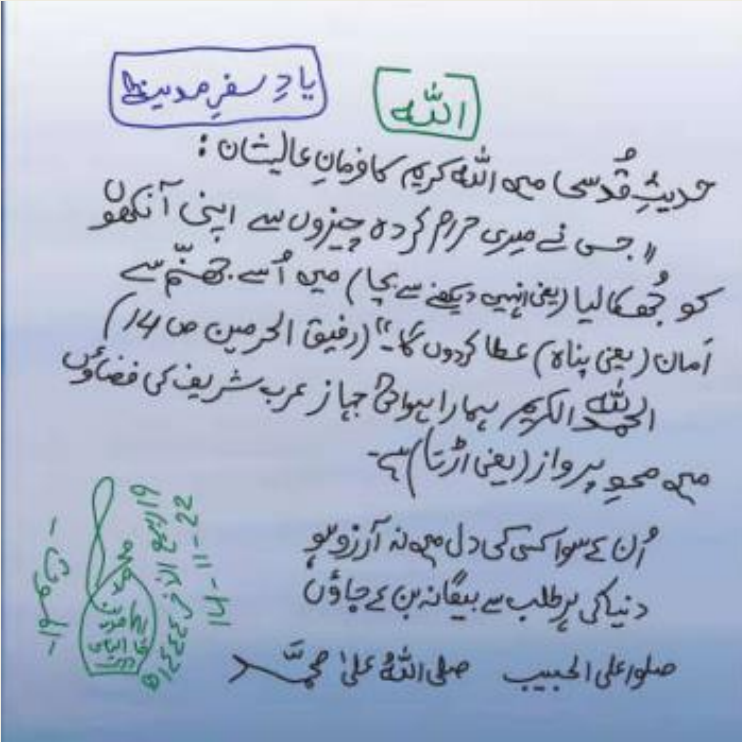 اللہ
یادِ سفرِ مدینہ
حدیثِ قُدسی میں اللہ کریم کا فرمانِ عالیشان :
"جس نے میری حرام کردہ چیزوں سے اپنی آنکھوں
کو جُھکالیا (یعنی انہیں دیکھنے سے بچا) میں اُسے جہنّم سے
اَمان (یعنی پناہ) عطا کردوں گا۔" (رفیق الحرمین ص 14)
الحمدللہ الکریم ہمارا ہوائی جہاز عرب شریف کی فضاؤں
میں محوِ پرواز (یعنی اڑتا) ہے۔
اُن کے سوا کسی کی دل میں نہ آرزو ہو
دنیا کی ہر طلب سے بیگانہ بن کے جاؤں
صلوا علی الحبیب صلی اللہُ علیٰ محمَّد
19 ربیع الآخر 1444ھ
14-11-22